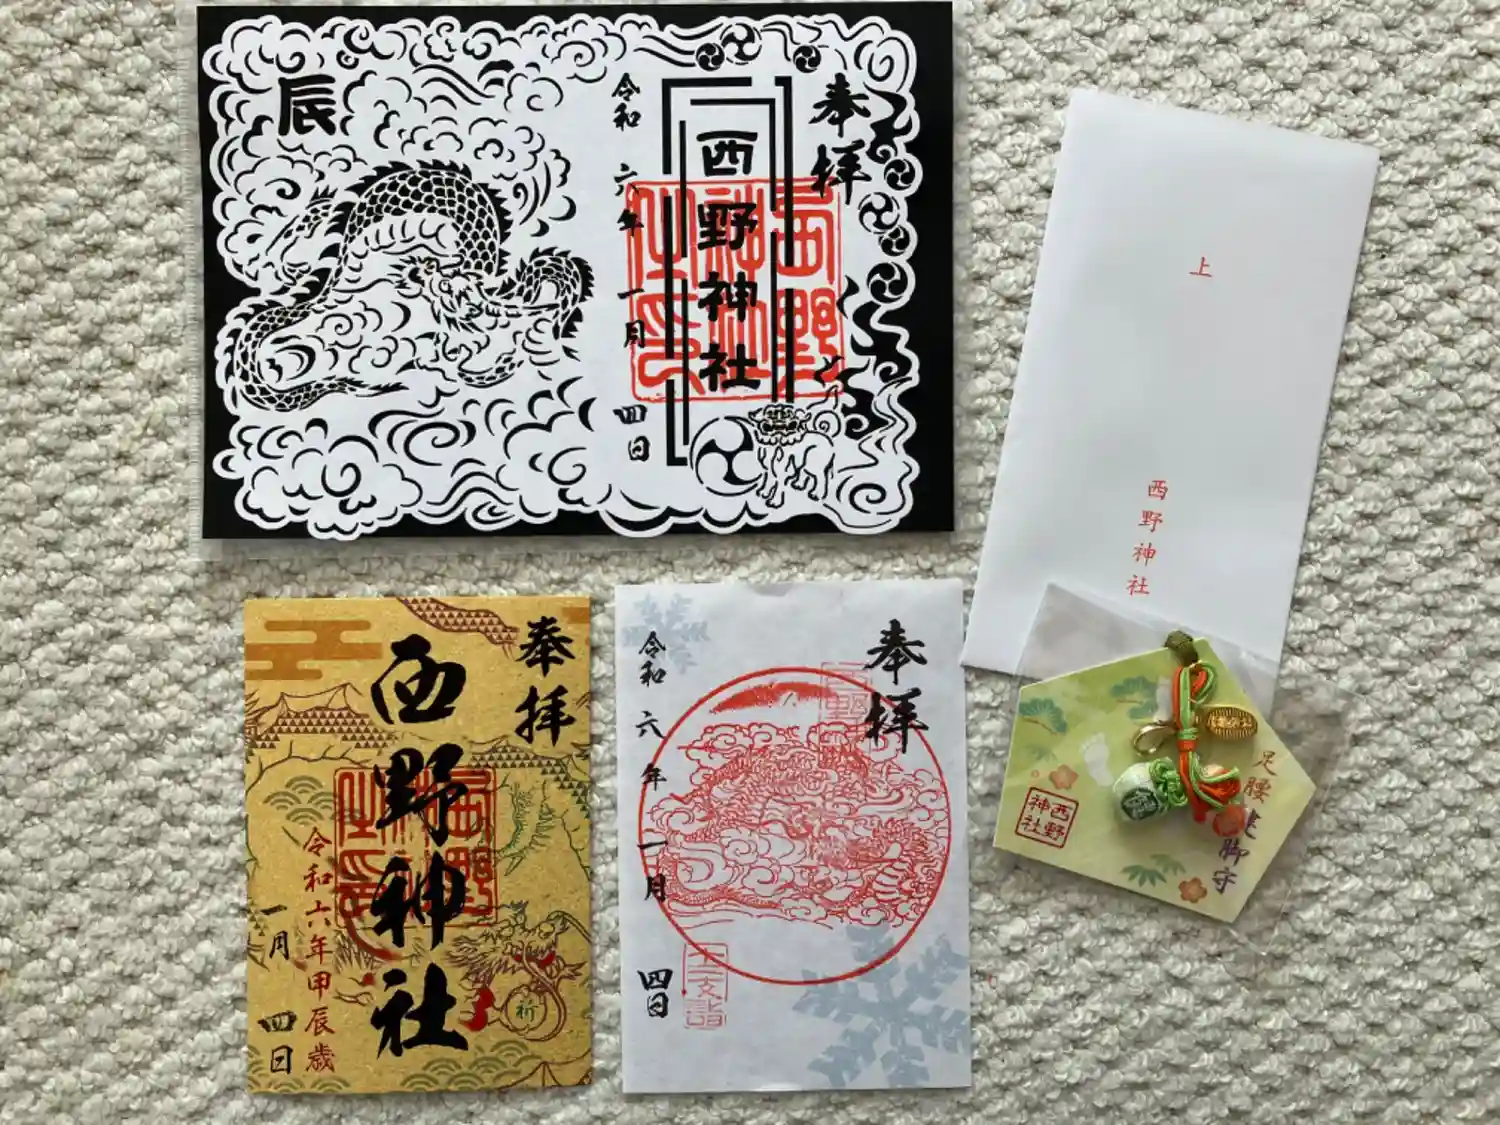 奉拝
西野神社
西野神社之印
令和六年一月四日
辰
上
西野神社
奉拝
西野神社
西野神社之印
令和六年甲辰歳
一月四日
祈
奉拝
令和六年一月四日
十二支詣
足腰健脚守
西野神社